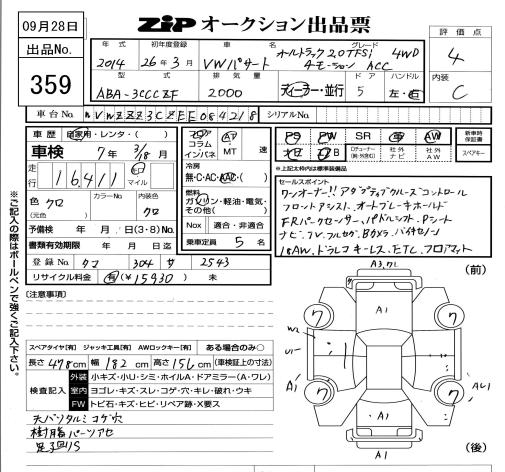 09月28日
ZIP オークション出品票
出品No.
359
年式 初年度登録 車名 グレード
2014 26年3月 VWパサート オールトラック2.0TFSi 4WD
4モーション ACC
型式 排気量 ドア ハンドル
ABA-3CCCZF 2000 ディーラー・並行 5 左・右
評価点
4
内装
C
車台No. WVWZZZ3CZEE084218 シリアルNo.
車歴 自家用・レンタ・( )
車検 7年3/18月
走行 16,411 キロ マイル
色 クロ
(元色)
カラーNo.
内装色 クロ
予備検 年 月 日(3・8)No.
書類有効期限 年 月 日迄
登録No. 304 サ 2543
リサイクル料金 有(¥15930) 未
シフト
フロア
コラム
インパネ
AT
MT 速
冷房
無・C・AC・AAC・( )
燃料
ガソリン・軽油・電気・
その他( )
Nox 適合・非適合
乗車定員 5名
PS PW SR 革 AW
ナビ TV
社外ナビ
社外AW
新車時保証書
スペアキー
※上記太枠内は標準装備品
セールスポイント
ワンオーナー!! アダプティブクルーズコントロール
フロントアシスト、オートブレーキホールド
FRパークセンサー、パドルシフト、Pシート
ナビ、TV、フルセグ、Bカメラ、バイキセノン
18AW、ドラレコ、キーレス、ETC、フロアマット
(注意事項)
スペアタイヤ[有] ジャッキ工具[有] AWロックキー[有] ある場合のみ○
長さ 478cm 幅 182cm 高さ 156cm (車検証上の寸法)
検査記入
外装 小キズ・小U・シミ・ホイルA・ドアミラー(A・ワレ)
室内 ヨゴレ・キズ・スレ・コゲ・穴・キレ・破れ・ウキ
FW トビ石・キズ・ヒビ・リペア跡・X要ス
天バリタルミ コゲ穴
樹脂パーツアセ
※ご記入の際はボールペンで強くご記入下さい。
(前)
A3,ワレ
A1
ワ
ワ
A1
ワ
ワ
A1
A1
(後)